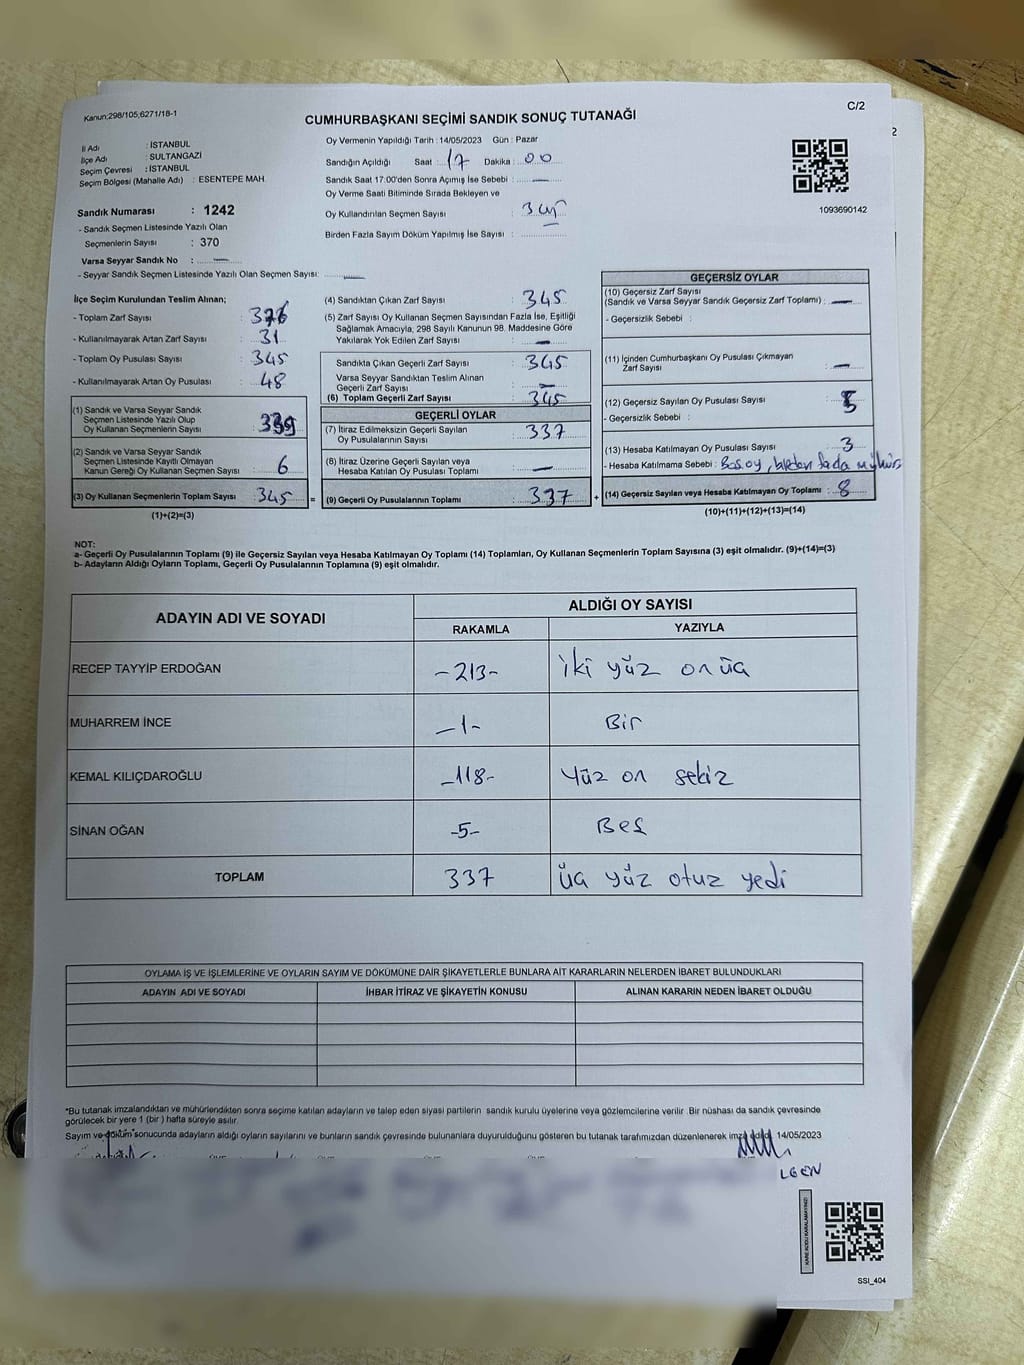 Kanun;298/105;6271/18-1
C/2
CUMHURBAŞKANI SEÇİMİ SANDIK SONUÇ TUTANAĞI
İl Adı : İSTANBUL
İlçe Adı : SULTANGAZİ
Seçim Çevresi : İSTANBUL
Seçim Bölgesi (Mahalle Adı) : ESENTEPE MAH.
Sandık Numarası : 1242
- Sandık Seçmen Listesinde Yazılı Olan
Seçmenlerin Sayısı : 370
Varsa Seyyar Sandık No : —
- Seyyar Sandık Seçmen Listesinde Yazılı Olan Seçmen Sayısı: —
Oy Vermenin Yapıldığı Tarih : 14/05/2023 Gün : Pazar
Sandığın Açıldığı Saat : 17 Dakika : 00
Sandık Saat 17:00'den Sonra Açımış İse Sebebi : —
Oy Verme Saati Bitiminde Sırada Bekleyen ve
Oy Kullandırılan Seçmen Sayısı :
Birden Fazla Sayım Döküm Yapılmış İse Sayısı :
1093690142
2
İlçe Seçim Kurulundan Teslim Alınan;
- Toplam Zarf Sayısı :
- Kullanılmayarak Artan Zarf Sayısı : 31
- Toplam Oy Pusulası Sayısı : 345
- Kullanılmayarak Artan Oy Pusulası : 48
(1) Sandık ve Varsa Seyyar Sandık
Seçmen Listesinde Yazılı Olup
Oy Kullanan Seçmenlerin Sayısı : 339
(2) Sandık ve Varsa Seyyar Sandık
Seçmen Listesinde Kayıtlı Olmayan
Kanun Gereği Oy Kullanan Seçmen Sayısı : 6
(3) Oy Kullanan Seçmenlerin Toplam Sayısı : 345 =
(1)+(2)=(3)
(4) Sandıktan Çıkan Zarf Sayısı : 345
(5) Zarf Sayısı Oy Kullanan Seçmen Sayısından Fazla İse, Eşitliği
Sağlamak Amacıyla, 298 Sayılı Kanunun 98. Maddesine Göre
Yakılarak Yok Edilen Zarf Sayısı : —
Sandıkta Çıkan Geçerli Zarf Sayısı : 345
Varsa Seyyar Sandıktan Teslim Alınan
Geçerli Zarf Sayısı : —
(6) Toplam Geçerli Zarf Sayısı : 345
GEÇERLİ OYLAR
(7) İtiraz Edilmeksizin Geçerli Sayılan
Oy Pusulalarının Sayısı : 337
(8) İtiraz Üzerine Geçerli Sayılan veya
Hesaba Katılan Oy Pusulası Toplamı : —
(9) Geçerli Oy Pusulalarının Toplamı : 337 +
GEÇERSİZ OYLAR
(10) Geçersiz Zarf Sayısı
(Sandık ve Varsa Seyyar Sandık Geçersiz Zarf Toplamı) : —
- Geçersizlik Sebebi :
(11) İçinden Cumhurbaşkanı Oy Pusulası Çıkmayan
Zarf Sayısı : —
(12) Geçersiz Sayılan Oy Pusulası Sayısı : 5
- Geçersizlik Sebebi :
(13) Hesaba Katılmayan Oy Pusulası Sayısı : 3
- Hesaba Katılmama Sebebi : Boş oy, birden fazla mühür
(14) Geçersiz Sayılan veya Hesaba Katılmayan Oy Toplamı : 8
(10)+(11)+(12)+(13)=(14)
NOT:
a- Geçerli Oy Pusulalarının Toplamı (9) ile Geçersiz Sayılan veya Hesaba Katılmayan Oy Toplamı (14) Toplamları, Oy Kullanan Seçmenlerin Toplam Sayısına (3) eşit olmalıdır. (9)+(14)=(3)
b- Adayların Aldığı Oyların Toplamı, Geçerli Oy Pusulalarının Toplamına (9) eşit olmalıdır.
ADAYIN ADI VE SOYADI
ALDIĞI OY SAYISI
RAKAMLA YAZIYLA
RECEP TAYYİP ERDOĞAN -213- iki yüz on üç
MUHARREM İNCE -1- Bir
KEMAL KILIÇDAROĞLU -118- Yüz on sekiz
SİNAN OĞAN -5- Beş
TOPLAM 337 üç yüz otuz yedi
OYLAMA İŞ VE İŞLEMLERİNE VE OYLARIN SAYIM VE DÖKÜMÜNE DAİR ŞİKAYETLERLE BUNLARA AİT KARARLARIN NELERDEN İBARET BULUNDUKLARI
ADAYIN ADI VE SOYADI İHBAR İTİRAZ VE ŞİKAYETİN KONUSU ALINAN KARARIN NEDEN İBARET OLDUĞU
*Bu tutanak imzalandıktan ve mühürlendikten sonra seçime katılan adayların ve talep eden siyasi partilerin sandık kurulu üyelerine veya gözlemcilerine verilir. Bir nüshası da sandık çevresinde
görülecek bir yere 1 (bir) hafta süreyle asılır.
Sayım ve döküm sonucunda adayların aldığı oyların sayılarını ve bunların sandık çevresinde bulunanlara duyurulduğunu gösteren bu tutanak tarafımızdan düzenlenerek imza edildi. 14/05/2023
KARE KODU KARALAMAYINIZ!
SSI_404